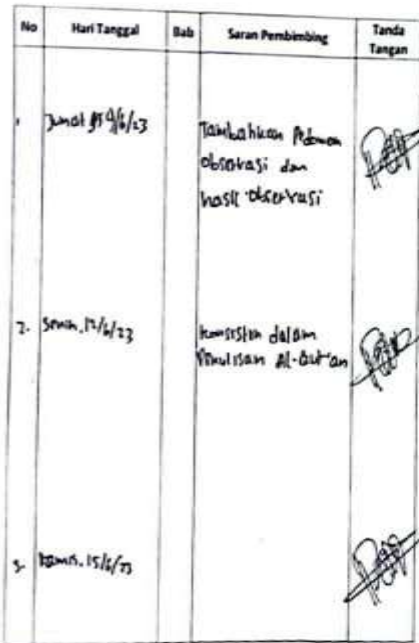 No Hari Tanggal Bab Saran Pembimbing Tanda Tangan
1. Jumat 9/6/23 Tambahkan Pedoman
observasi dan
hasil observasi
2. Senin, 12/6/23 konsisten dalam
Penulisan Al-Qur'an
3. Kamis, 15/6/23